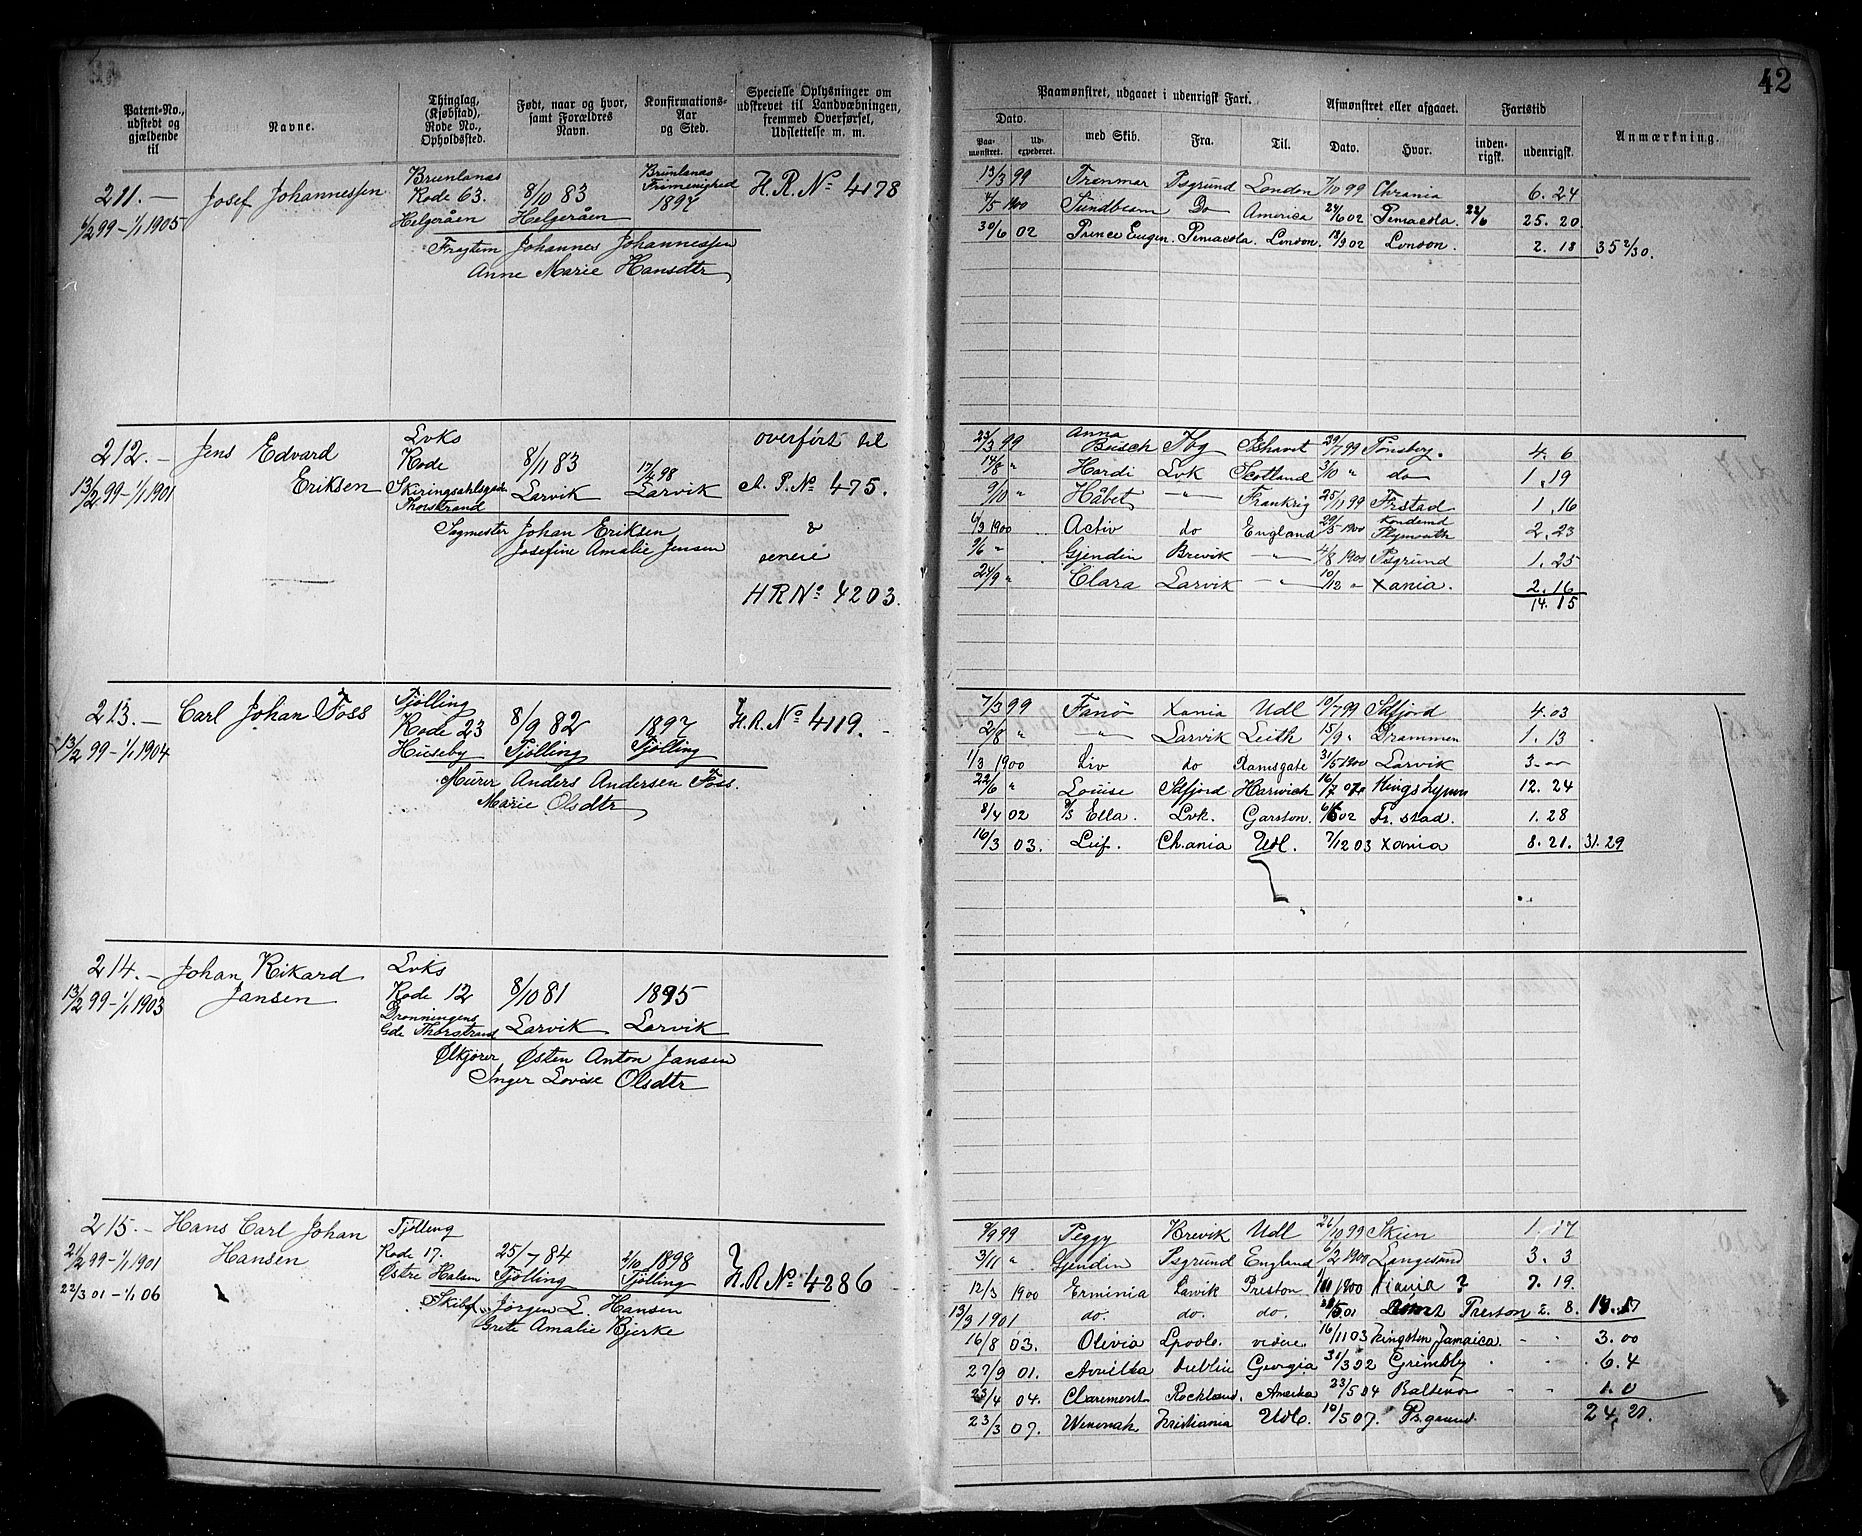 42
Patent-No., udstedt og gjældende til
Navne.
Thinglag, (Kjøbstad), Rode No., Opholdssted.
Født, naar og hvor, samt Forældres Navn.
Konfirmations-Aar og Sted.
Specielle Oplysninger om udskrevet til Landværnet, fremmed Overførsel, Udslettelse m. m.
Paamønstret, udgaaet i udenrigsk Fart.
Afmønstret eller afgaaet.
Fartstid
Anmærkning.
Dato.
Paa-mønstret.
Ud-expederet.
med Skib.
Fra.
Til.
Dato.
Hvor.
inden-rigsk.
udenrigsk.
211.— Josef Johannessen
Brunlanæs Rode 63. Helgeråen
8/10 83 Helgeråen
Brunlanæs Frimenighed 1897
H. R. No 4178
6/2 99 – 1/1 1905
Johannes Johannessen
Anne Marie Hansdtr
13/3 99 Frenmar Psgrund London 7/10 99 Chrania 6. 24
7/5 1900 Sundbeam Do America 24/6 02 Pensacola 25. 20
30/6 02 Prince Eugen. Pensacola. London. 18/9 02 London. 2. 18 35 2/30.
212.— Jens Edvard Eriksen
Lvks Rode
Thorstrand
8/11 83 Larvik
17/4 98 Larvik
overført til A. P. No 475.
&
senere
HR No 4203.
13/2 99 – 1/1 1901
Sagmester Johan Eriksen
Josefine Amalie Jensen
23/3 99 Anna Busch Tbg 29/7 99 Tønsberg. 4. 6
14/8 " Hardi Lvk Scotland 3/10 " do 1. 19
9/10 " Håbet —"— Frankrig 25/11 99 Frstad 1. 16
6/3 1900 Activ do England 29/5 1900 Kondemd Plymouth 2. 23
9/6 " Gjendin Brevik —"— 4/8 1900 Psgrund 1. 25
24/9 " Clara Larvik —"— 10/12 " Xania. 2. 16
14. 15
213.— Carl Johan Foss
Tjølling Rode 23 Huseby
8/9 82 Tjølling
1897 Tjølling
H. R. No 4119.
13/2 99 – 1/1 1904
Murer Anders Andersen Foss.
Marie Olsdtr
7/3 99 Fanø Xania Udl 10/7 99 Sdfjord 4. 03
2/8 " —"— Larvik Leith 15/9 " Drammen 1. 13
1/3 1900 Liv do Ramsgate 31/5 1900 Larvik 3. —
22/6 " Louise Sdfjord Harwich Kings Lynn 12. 24
8/4 02 D/S Ella. Lvk. Garston. Fr. stad. 1. 28
16/3 03. Leif. Ch.ania Udl. 7/12 03 Xania 8. 21. 31. 29
214.— Johan Rikard Jansen
Lvks Rode 12 Dronningens Gde Thorstrand
8/10 81 Larvik
1895 Larvik
13/2 99 – 1/1 1903
Ølkjører Østen Anton Jansen
Inger Lovise Olsdtr
215.— Hans Carl Johan Hansen
Tjølling Rode 17. Østre Halsen
25/7 84 Tjølling
2/10 1898 Tjølling
H. R. No 4286
21/2 99 – 1/1 1901
22/3 01 – 1/1 06
Jörgen L. Hansen
Grete Amalie Bjerke
9/9 99 Peggy Brevik Udl 26/10 99 Skien 1. 17
3/11 " Gjendin Psgrund England 6/2 1900 Langesund 3. 3
12/3 1900 Erminia Larvik Preston 1900 ? 7. 19.
13/3 1901 do. do. do. Preston 2. 8.
16/8 03. Olivia Lpool. videre. 16/11 03 Kingston Jamaica. 3. 00
27/9 01. Dublin Georgia 31/3 02 Grimsby 6. 4
23/4 04. Claremont Rockland. Amerika 23/5 04 1. 0
23/3 07. Wenonah Kristiania Udl. 10/5 07. Psgrund. 24. 21.